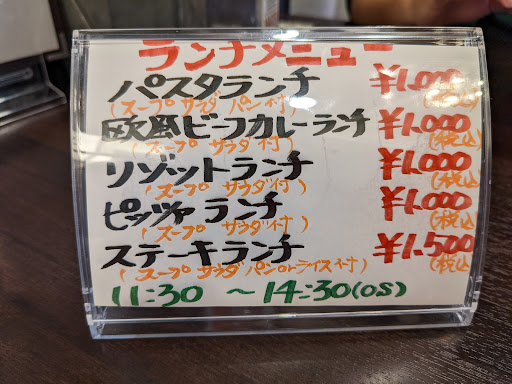 ランチメニュー
パスタランチ ¥1,000
(スープ サラダ パン付) (税込)
欧風ビーフカレーランチ ¥1,000
(スープ サラダ付) (税込)
リゾットランチ ¥1,000
(スープ サラダ付) (税込)
ピッツァランチ ¥1,000
(スープ サラダ付) (税込)
ステーキランチ ¥1,500
(スープ サラダ パンorライス付) (税込)
11:30 ～14:30(OS)